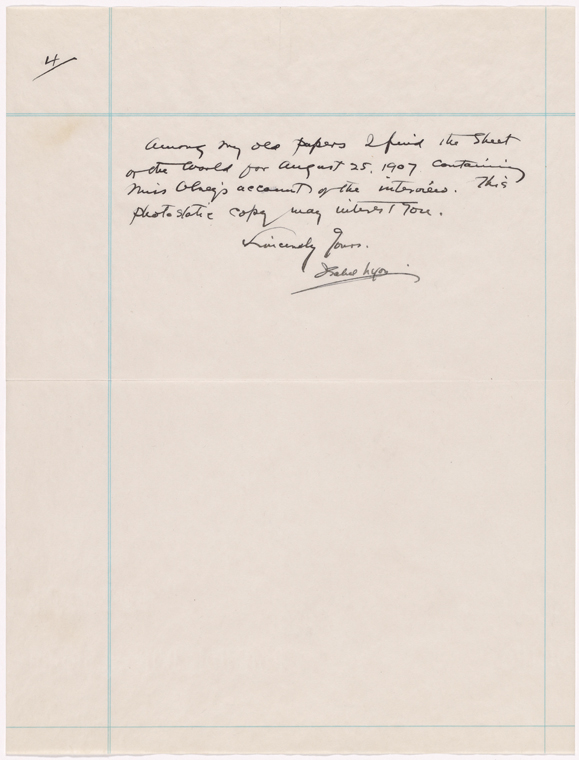 4
Among my old papers I find the Sheet
of the World for August 25, 1907 containing
Miss Olney's account of the interview. This
photostatic copy may interest you.
Sincerely Yours.
Isabel Lyon